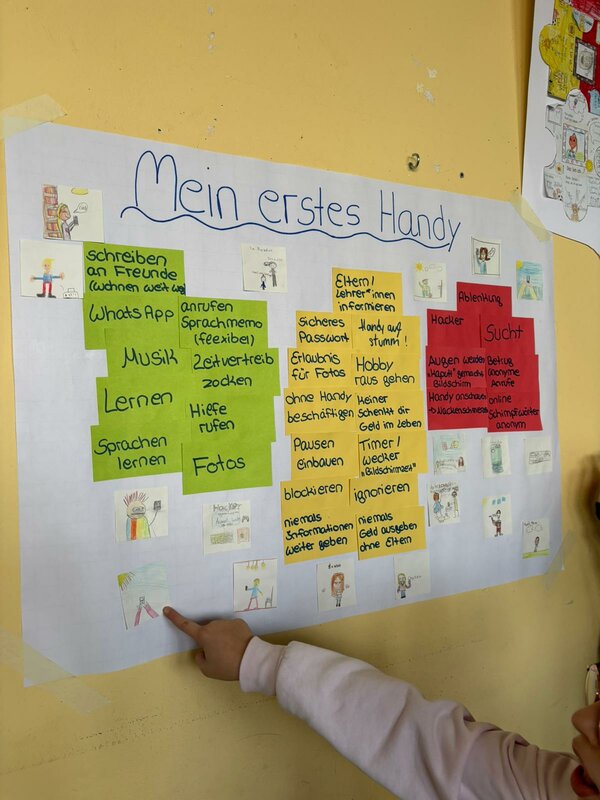 Mein erstes Handy
schreiben
an Freunde
(wohnen weit we
WhatsApp
anrufen
Sprachmemo
(feexibel)
Musik
Zeitvertreib
zocken
Lernen
Hilfe
rufen
Sprachen
lernen
Fotos
Eltern/
Lehrer*innen
informieren
sicheres
Passwort
Handy auf
stumm!
Erlaubnis
für Fotos
Hobby
raus gehen
ohne Handy
beschäftigen
Keiner
schenkt dir
Geld im Leben
Pausen
einbauen
Timer/
Wecker
"Bildschirmzeit"
blockieren
ignorieren
niemals
Informationen
weiter geben
niemals
Geld ausgeben
ohne Eltern
Ablenkung
Hacker
Sucht
Augen werden
"kaputt" gemacht
Bildschirm
Betrug
anonyme
Anrufe
Handy anschauen
→ Nackenschmerzen
online
Schimpfwörter
anonym